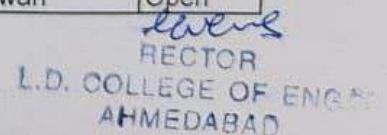 Open
RECTOR
L.D. COLLEGE OF ENGG
AHMEDABAD